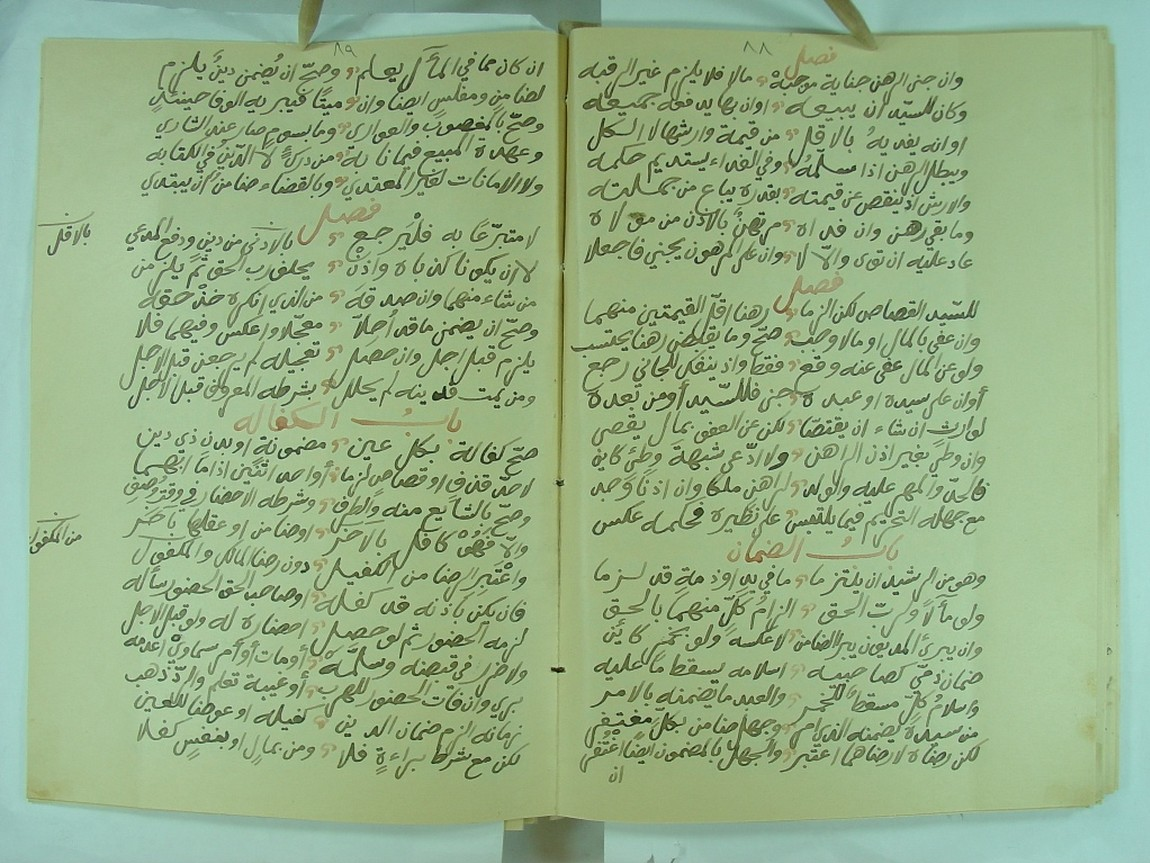 ٨٨
فصل
وان جنى الرهن جناية موجبة مالا فلا يلزم غير الرقبه
وكان للسيد ان يبيعه اوان بها يدفعه جميعه
اوانه يفديه بالاقل من قيمة وارشها لا الكل
ويبطل الرهن اذا سلمه وفي الفداء يستديم حكمه
والارش اذ ينقص عن قيمته بقدره يباع من جملته
وما بقي رهن وان فداه مرتهن بالاذن من مولاه
عاد عليه ان نوى والا لا وان على المرهون يجني فاجعلا
فصل
للسيد القصاص لكن الزما رهنا اقل القيمتين منهما
وان عفى بالمال او مالا وجب صح وما يقبض رهنا يحتسب
ولو عن المال عفى عنه وقع فقط واذ ينفك الجاني رجع
أوان على سيده او عبده جنى فللسيد أو من بعده
لوارث ان شاء ان يقتصا لكن عن العفو بمال يقصى
وان وطئ بغير اذن الراهن ولا ادعى شبهة وطئ كاين
فالحد والمهر عليه والولد لراهن ملكا وان اذنا وجد
مع جهله التحريم فيما يلتبس على نظيره فحكمه عكس
باب الضمان
وهو من الرشيد ان يلتزما ما في يد او ذمة قد لزما
ولو مآلا ولرب الحق الزام كل منهما بالحق
وان يبرئ المديون يبر الضامن لا عكسه ولو بخمر كائن
ضمان ذمي كصاحبه اسلامه يسقط ما عليه
واسلام كل مسقط للخمر والعبد ما يضمنه بالامر
من سيده يضمنه الذي امر وجهل ضامن بكل مغتفر
لكن رضاه لا رضاهما اعتبر والجهل بالمضمون ايضا اغتفر
ان
٨٩
ان كان مما في المآل يعلم وصح ان يضمن دين يلزم
لضامن ومفلس ايضا وان ميتا فيبر به الوفا حينئذ
وصح بالمغصوب والعواري وما بسوم صار عند الشاري
وعهدة المبيع فيما نابه من درك لا الدين في الكتابه
ولا الامانات لغير المعتدي وبالقضاء ضامن ان يبتدي
فصل
لا متبرعا به فليرجع بالادنى من دين ودفع المدعي
بالاقل
لا ان يكونا كذباه واذن يحلف رب الحق ثم يلزمن
من شاء منهما وان صدقه من الذي انكره خذ حقه
وصح ان يضمن ما قد اجلا معجلا واعكس وفيهما فلا
يلزم قبل اجل وان حصل تعجيله لم يرجعن قبل الاجل
ومن يمت فدينه لم يحلل بشرطه المعروف قبل الاجل
باب الكفاله
صح كفالة بكل عين مضمونة او بدن ذي دين
لا حد قذف او قصاص لزما أو احد اثنين اذا ما ابهما
وصح بالشايع منه والطرف وشرطه الاحضار في وقت وصف
والا فهو كافل بالآخر او ضامن او عقلها بآخر
واعتبر الرضا من الكفيل دون رضا المالك والمكفول
من المكفول
فان يكن باذنه قد كفله او صاحب الحق الحضور سأله
لزمه الحضور ثم لو حصل احضاره له ولو قبل الاجل
ولا ضرر في قبضه وسلمه أو مات أو أمر سماوي اعدمه
بري وان فات الحضور للهرب أو غيبة تعلم والرد ذهب
زمانه الزم ضمان الدين كفيله او عوضا للعين
لكن مع شرط براءة فلا ومن بمال او بنفس كفلا